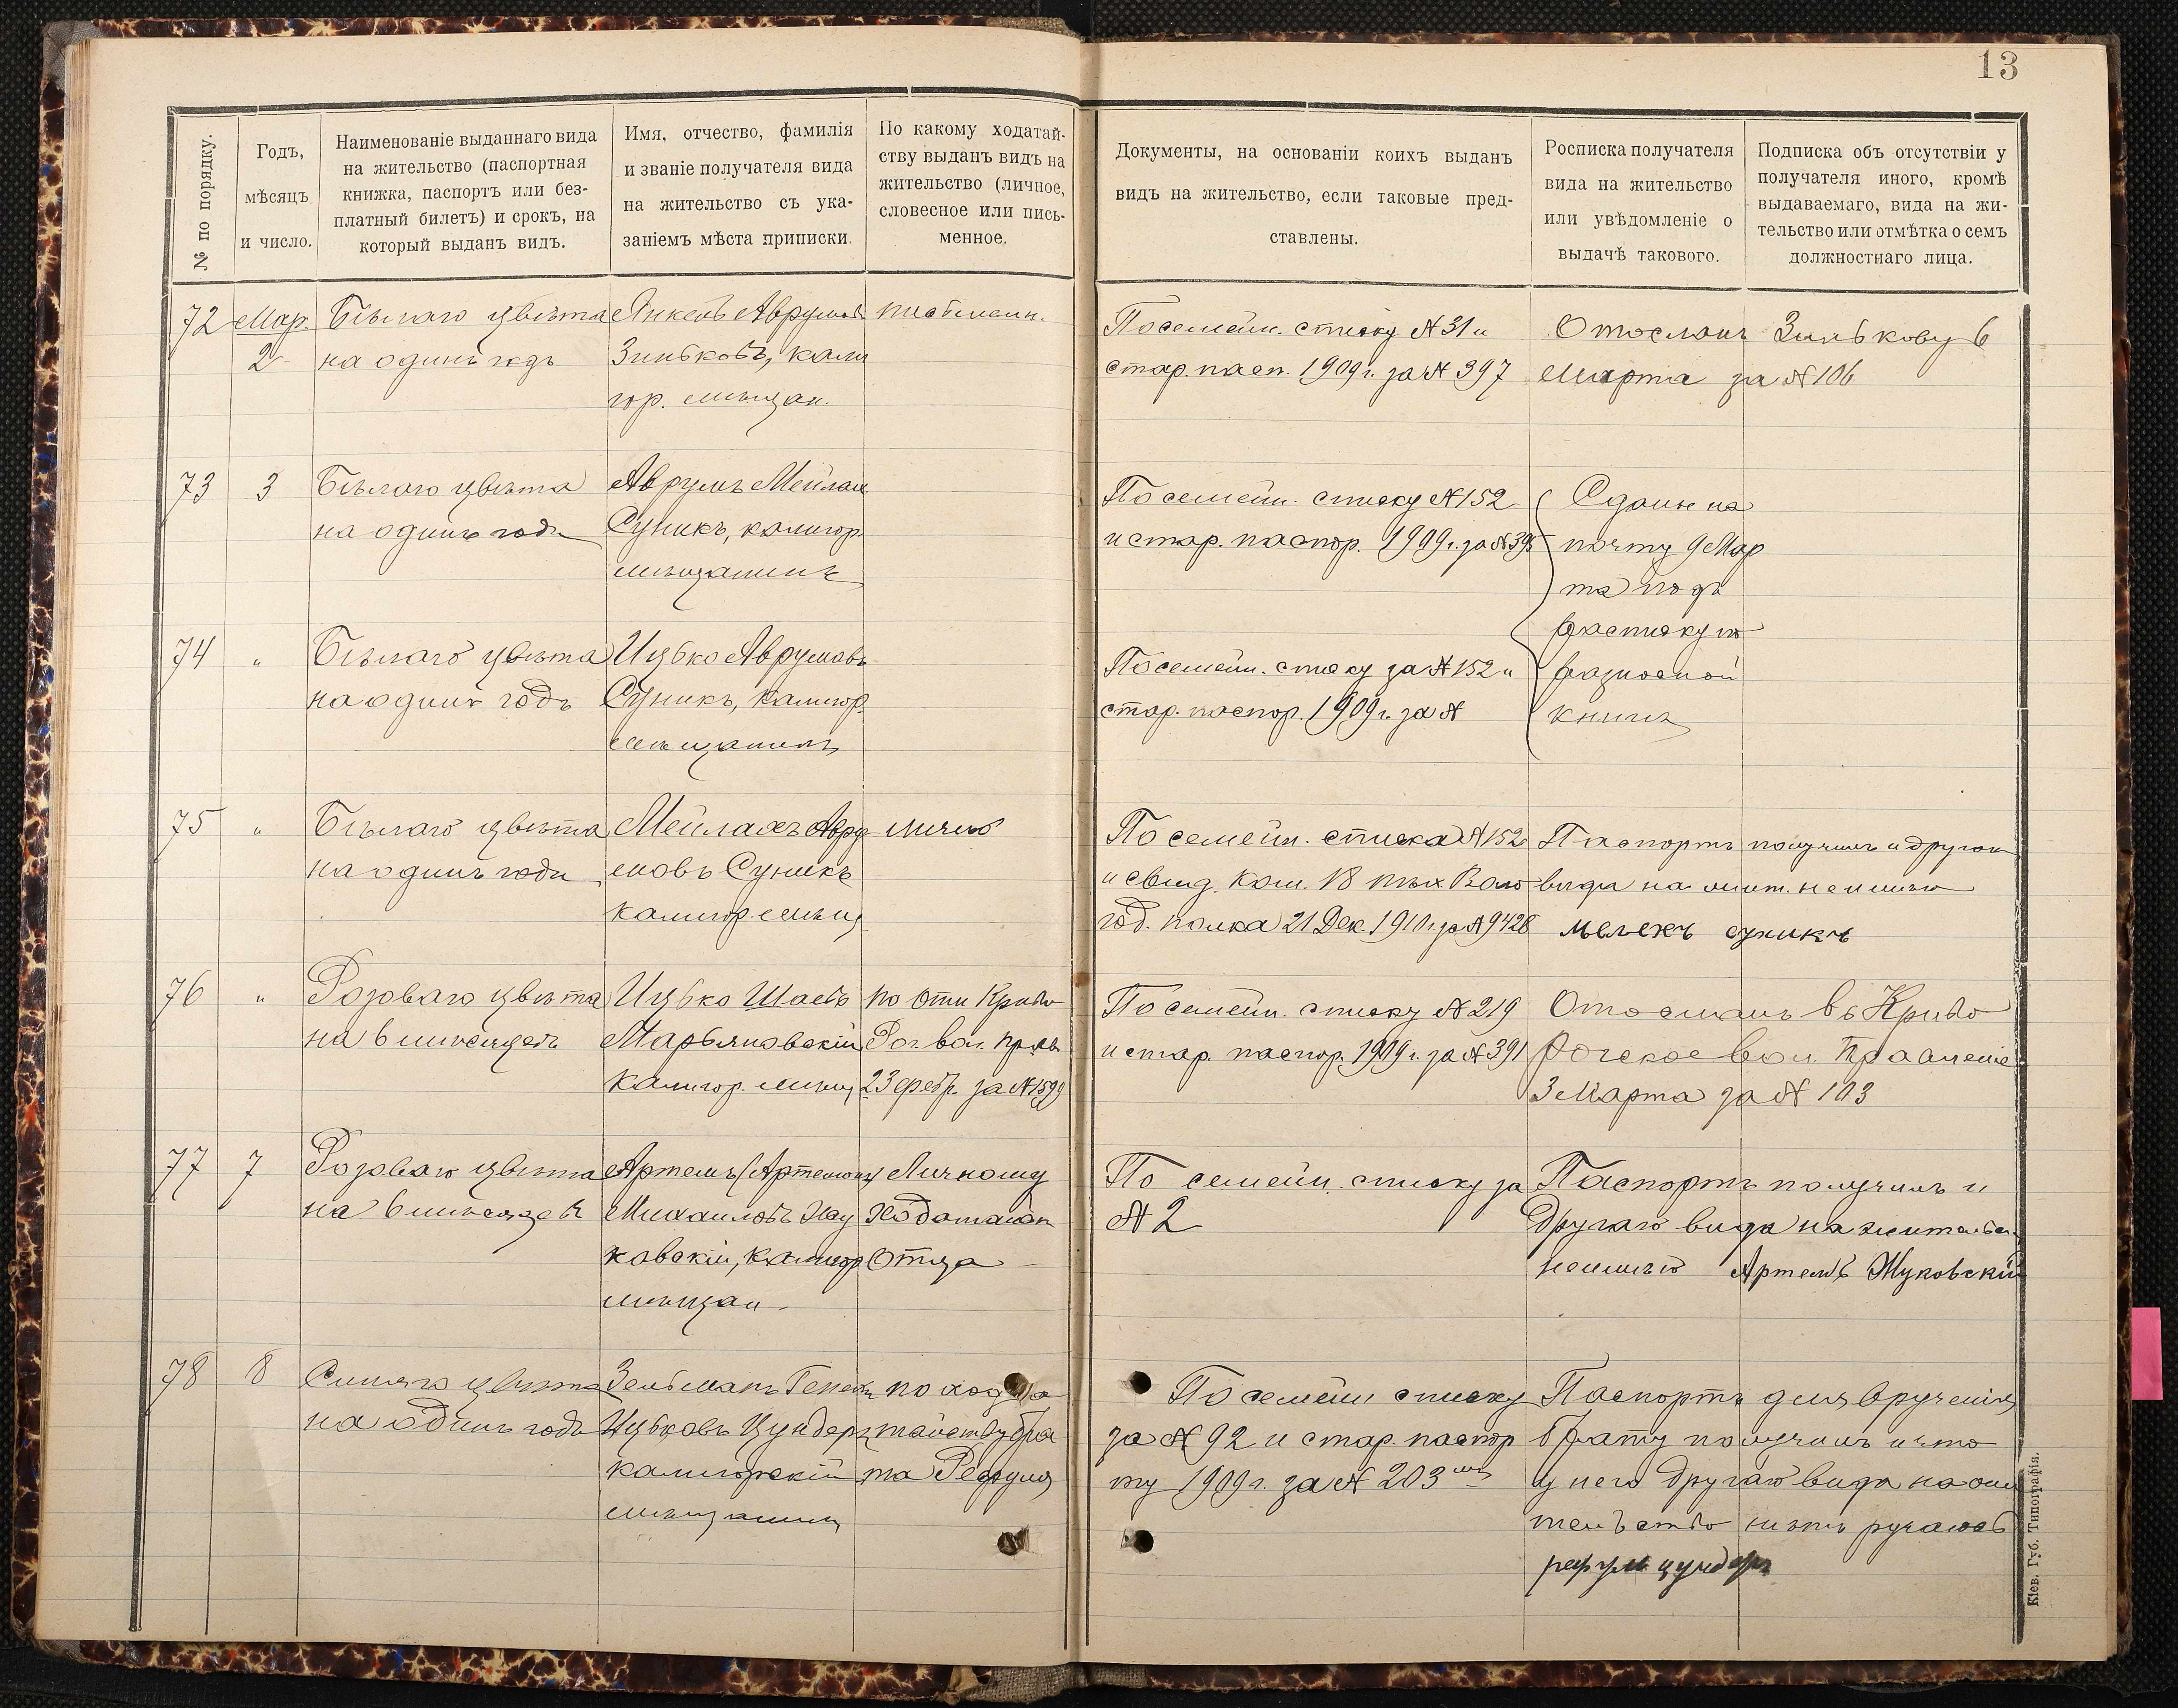 13
№ по порядку.
Годъ,
мѣсяцъ
и число.
Наименованіе выданнаго вида
на жительство (паспортная
книжка, паспортъ или без-
платный билетъ) и срокъ, на
который выданъ видъ.
Имя, отчество, фамилія
и званіе получателя вида
на жительство съ ука-
заніемъ мѣста приписки.
По какому ходатай-
ству выданъ видъ на
жительство (личное,
словесное или пись-
менное.
Документы, на основаніи коихъ выданъ
видъ на жительство, если таковые пред-
ставлены.
Росписка получателя
вида на жительство
или увѣдомленіе о
выдачѣ такового.
Подписка объ отсутствіи у
получателя иного, кромѣ
выдаваемаго, вида на жи-
тельство или отмѣтка о семъ
должностнаго лица.
72
Мар.
2
Бѣлаго цвѣта
на одинъ годъ
Янкель Аврумов
Зиньковъ, кали
гор. мѣщан.
письменн.
По семейн. списку № 31 и
стар. пасп. 1909 г. за № 397
Отосланъ Зинькову 6
Марта за № 106
73
3
Бѣлаго цвѣта
на одинъ годъ
Аврумъ Мейлах
Суникъ, калигор.
мѣщанинъ
По семейн. списку № 152
и стар. паспор. 1909 г. за № 395
Сданы на
почту 9 Мар
та подъ
росписку въ
разносной
книгѣ
74
"
Бѣлаго цвѣта
на одинъ годъ
Ицько Аврумовъ
Суникъ, калигор.
мѣщанинъ
По семейн. списку за № 152 и
стар. паспор. 1909 г. за №
75
"
Бѣлаго цвѣта
на одинъ годъ
Мейлахъ Авру
мовъ Суникъ
калигор. мѣщ
лично
По семейн. списка № 152
и свид. Ком. 18 пѣх. Воло
год. полка 21 Дек. 1910 г. за № 9428
Паспортъ получилъ и другого
вида на жит. не имѣю
мелехъ суникъ
76
"
Розоваго цвѣта
на 6 мѣсяцевъ
Ицько Шаевъ
Марьяновскій
калигор. мѣщ
по отн. Криво
Рог. вол. прав
23 февр. за № 1599
По семейн. списку № 219
и стар. паспор. 1909 г. за № 391
Отосланъ въ Криво
Рогское вол. Правленіе
3 Марта за № 103
77
7
Розоваго цвѣта
на 6 мѣсяцевъ
Артемъ (Артемонъ)
Михаиловъ Жу
ковскій, калигор
мѣщан.
Личному
ходатайств
отца
По семейн. списку за
№ 2
Паспортъ получилъ и
Другаго вида на жительст
неимѣю Артемъ Жуковскій
78
8
Синяго цвѣта
на одинъ годъ
Зельманъ
Ицковъ Цундеръ
калигорскій
мѣщанинъ
по хода
тайству бра
та Рефула
По семейн списку
за № 92 и стар. паспор
ту 1909 г. за № 203
Паспортъ для врученія
брату получилъ и что
у него другаго вида на жи
тельство нѣтъ ручаюсь
рефул цундеръ
Кіев. Губ. Типографія.